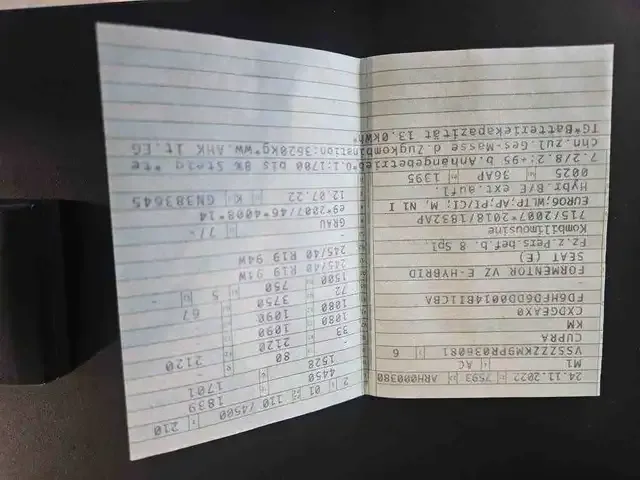 24.11.2022 7593 ARH000380
M1 AC
VSSZZZKM9PR036081 6
CUPRA
KM
CXDGEAX0
FD6HFD6DD0014B1ICBA
FORMENTOR VZ E-HYBRID
SEAT (E)
Fz.z.Pers.bef.b. 8 Spl.
Kombilimousine
715/2007*2018/1832AP
EURO6;WLTP;AP;PI/CI; M, N1 I
Hybr.B/E ext.aufl.
0025 36AP 1395
2 01 110 /4500 210
4450 1839
1528 1701
33 80
2120 2120
1080 1090
1080 1090
72 3750 67
1500 750 5
245/40 R19 94W
245/40 R19 94W
GRAU 7/-
e9*2007/46*4008*14
12.07.22 K GN383645
7.2/8.2:+95 b.Anhängebetrieb*O.1:1700 bis 8% Steig*te
chn.zul.Ges-Masse d.Zugkombination:3620kg*ww.AHK lt.EG
TG*Batteriekapazität 13,0kWh*